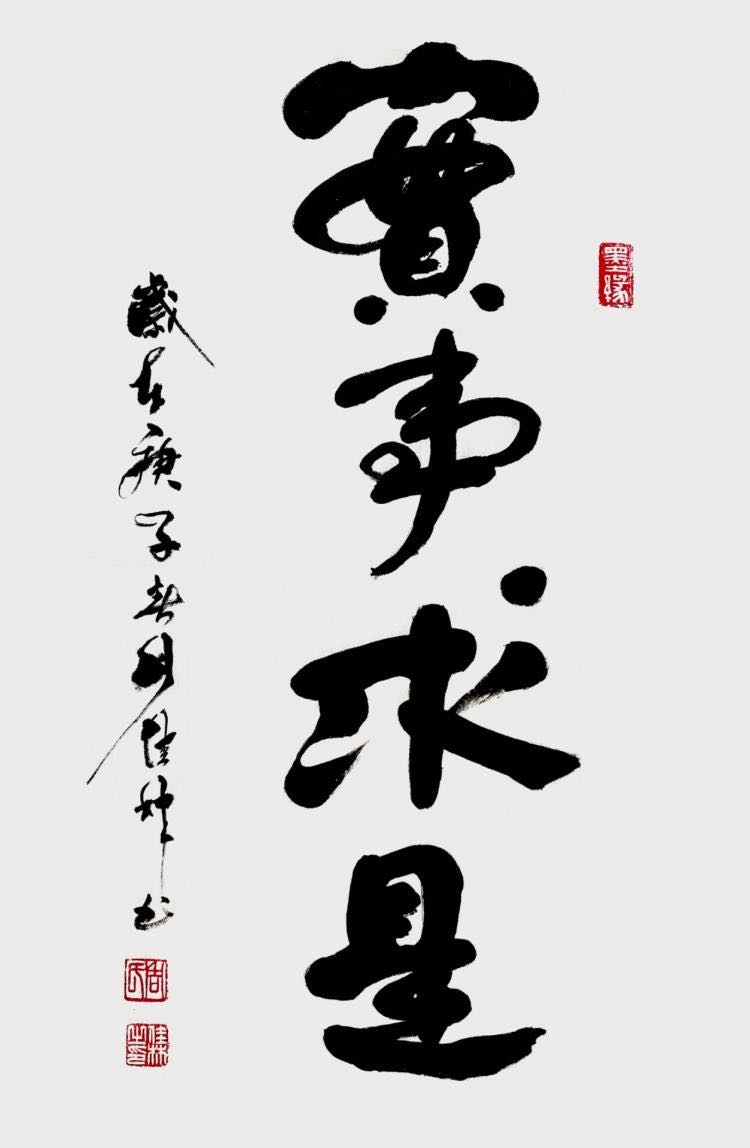 實事求是
墨緣
歲在庚子春月 书
周氏